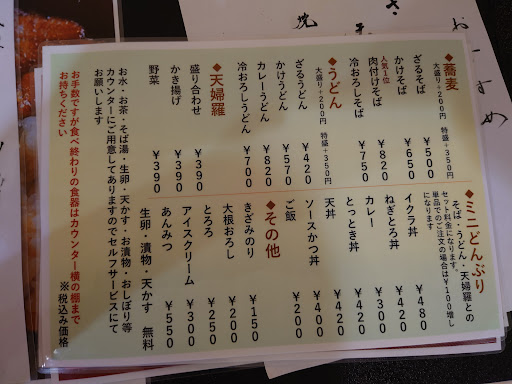 ◆蕎麦
大盛り+200円 特盛+350円
ざるそば ¥500
かけそば ¥650
人気1位
肉付けそば ¥820
冷おろしそば ¥750
◆うどん
大盛り+200円 特盛+350円
ざるうどん ¥420
かけうどん ¥570
カレーうどん ¥820
冷おろしうどん ¥700
◆天婦羅
盛り合わせ ¥390
かき揚げ ¥390
野菜 ¥390
◆ミニどんぶり
そば・うどん・天婦羅との
セット料金になります。
単品でのご注文の場合は¥100増し
になります
イクラ丼 ¥480
ねぎとろ丼 ¥420
カレー ¥300
とっとき丼 ¥420
天丼 ¥420
ソースかつ丼 ¥400
ご飯 ¥200
◆その他
きざみのり ¥150
大根おろし ¥200
とろろ ¥250
アイスクリーム ¥300
あんみつ ¥550
生卵・漬物・天かす 無料
お水・お茶・そば湯・生卵・天かす・お漬物・おしぼり等
カウンターにご用意してありますのでセルフサービスにて
お願いします
お手数ですが食べ終わりの食器はカウンター横の棚まで
お持ちください
※税込み価格